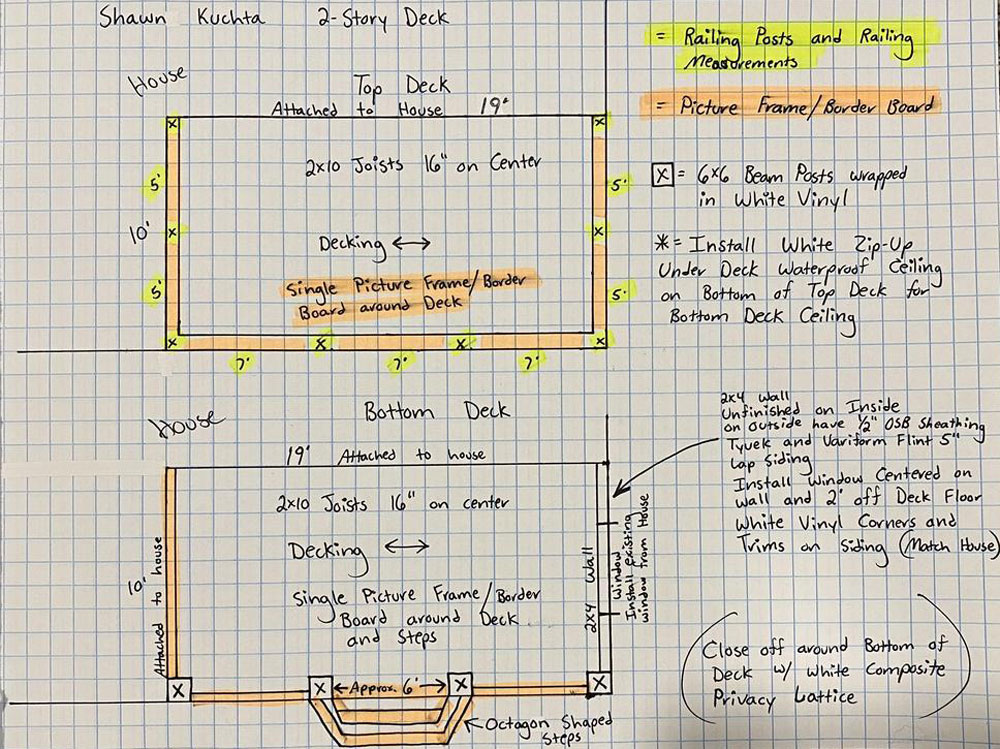 Shawn Kuchta 2-Story Deck
= Railing Posts and Railing
Measurements
= Picture Frame/Border Board
House
Top Deck
Attached to House 19'
2x10 Joists 16" on Center
5'
5'
10'
Decking
5'
5'
Single Picture Frame/Border
Board around Deck
7'
7'
7'
X = 6x6 Beam Posts wrapped
in White Vinyl
* = Install White Zip-Up
Under Deck Waterproof Ceiling
on Bottom of Top Deck for
Bottom Deck Ceiling
House
Bottom Deck
19' Attached to house
2x10 Joists 16" on center
Decking
10'
Attached to house
Single Picture Frame/Border
Board around Deck
and Steps
2x4 Wall
Window
Install existing
window from House
Approx. 6'
Octagon Shaped
Steps
2x4 Wall
Unfinished on Inside
on outside have 1/2" OSB Sheathing
Tyvek and Variform Flint 5"
Lap Siding
Install Window Centered on
Wall and 2' off Deck Floor
White Vinyl Corners and
Trims on Siding (Match House)
Close off around Bottom of
Deck w/ White Composite
Privacy Lattice